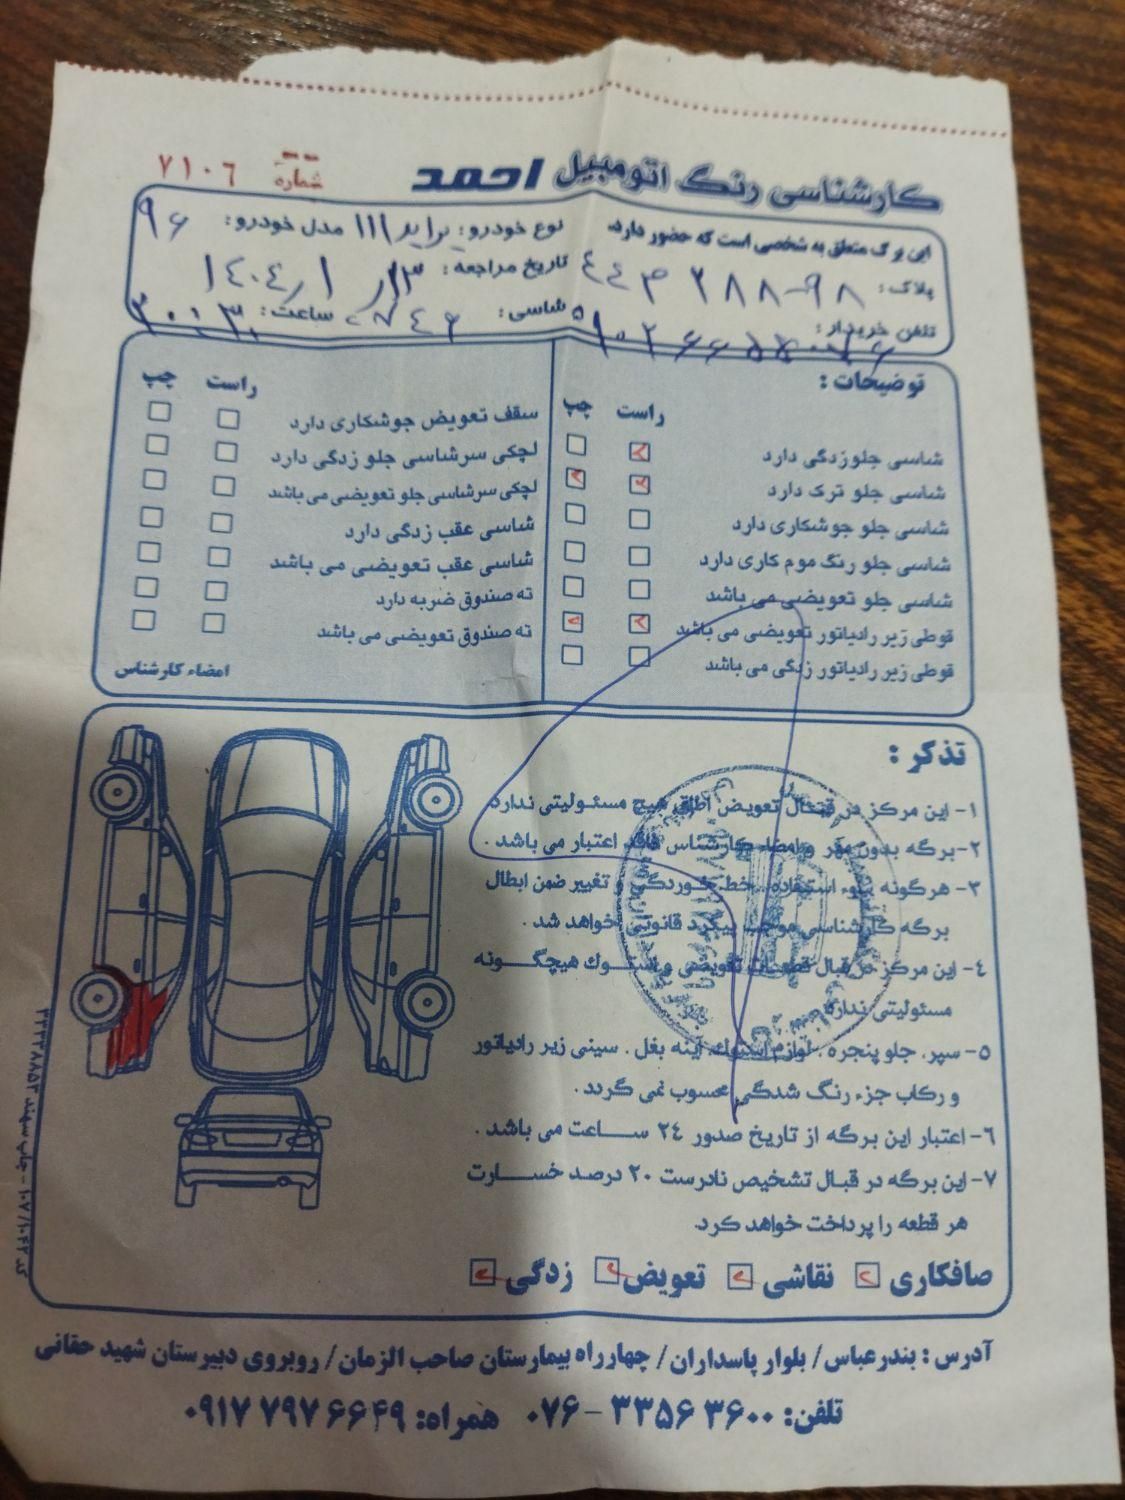 کارشناسی رنگ اتومبیل احمد
شماره ۷۱۰۶
این برگ متعلق به شخصی است که حضور دارد.
نوع خودرو: پراید ۱۱۱ مدل خودرو: ۹۶
پلاک:
تاریخ مراجعه:
تلفن خریدار:
شاسی:
ساعت:
توضیحات:
راست چپ
شاسی جلو زدگی دارد
شاسی جلو ترک دارد
شاسی جلو جوشکاری دارد
شاسی جلو رنگ موم کاری دارد
شاسی جلو تعویضی می باشد
قوطی زیر رادیاتور تعویضی می باشد
قوطی زیر رادیاتور زدگی می باشد
راست چپ
سقف تعویض جوشکاری دارد
لچکی سرشاسی جلو زدگی دارد
لچکی سرشاسی جلو تعویضی می باشد
شاسی عقب زدگی دارد
شاسی عقب تعویضی می باشد
ته صندوق ضربه دارد
ته صندوق تعویضی می باشد
امضاء کارشناس
تذکر:
۱- این مرکز در قبال تعویض اطاق هیچ مسئولیتی ندارد
۲- برگه بدون مهر و امضاء کارشناس فاقد اعتبار می باشد.
۳- هرگونه سوء استفاده، خط خوردگی و تغییر ضمن ابطال
برگه کارشناسی موجب پیگرد قانونی خواهد شد.
۴- این مرکز در قبال قطعات تعویضی و استوک هیچگونه
مسئولیتی ندارد
۵- سپر، جلو پنجره، لوازم استوک، آینه بغل، سینی زیر رادیاتور
و رکاب جزء رنگ شدگی محسوب نمی گردند.
۶- اعتبار این برگه از تاریخ صدور ۲۴ ساعت می باشد.
۷- این برگه در قبال تشخیص نادرست ۲۰ درصد خسارت
هر قطعه را پرداخت خواهد کرد.
صافکاری نقاشی تعویض زدگی
آدرس: بندرعباس/ بلوار پاسداران/ چهارراه بیمارستان صاحب الزمان/ روبروی دبیرستان شهید حقانی
تلفن: ۳۳۵۶۳۶۰۰-۰۷۶ همراه: ۰۹۱۷۷۹۷۶۶۴۹